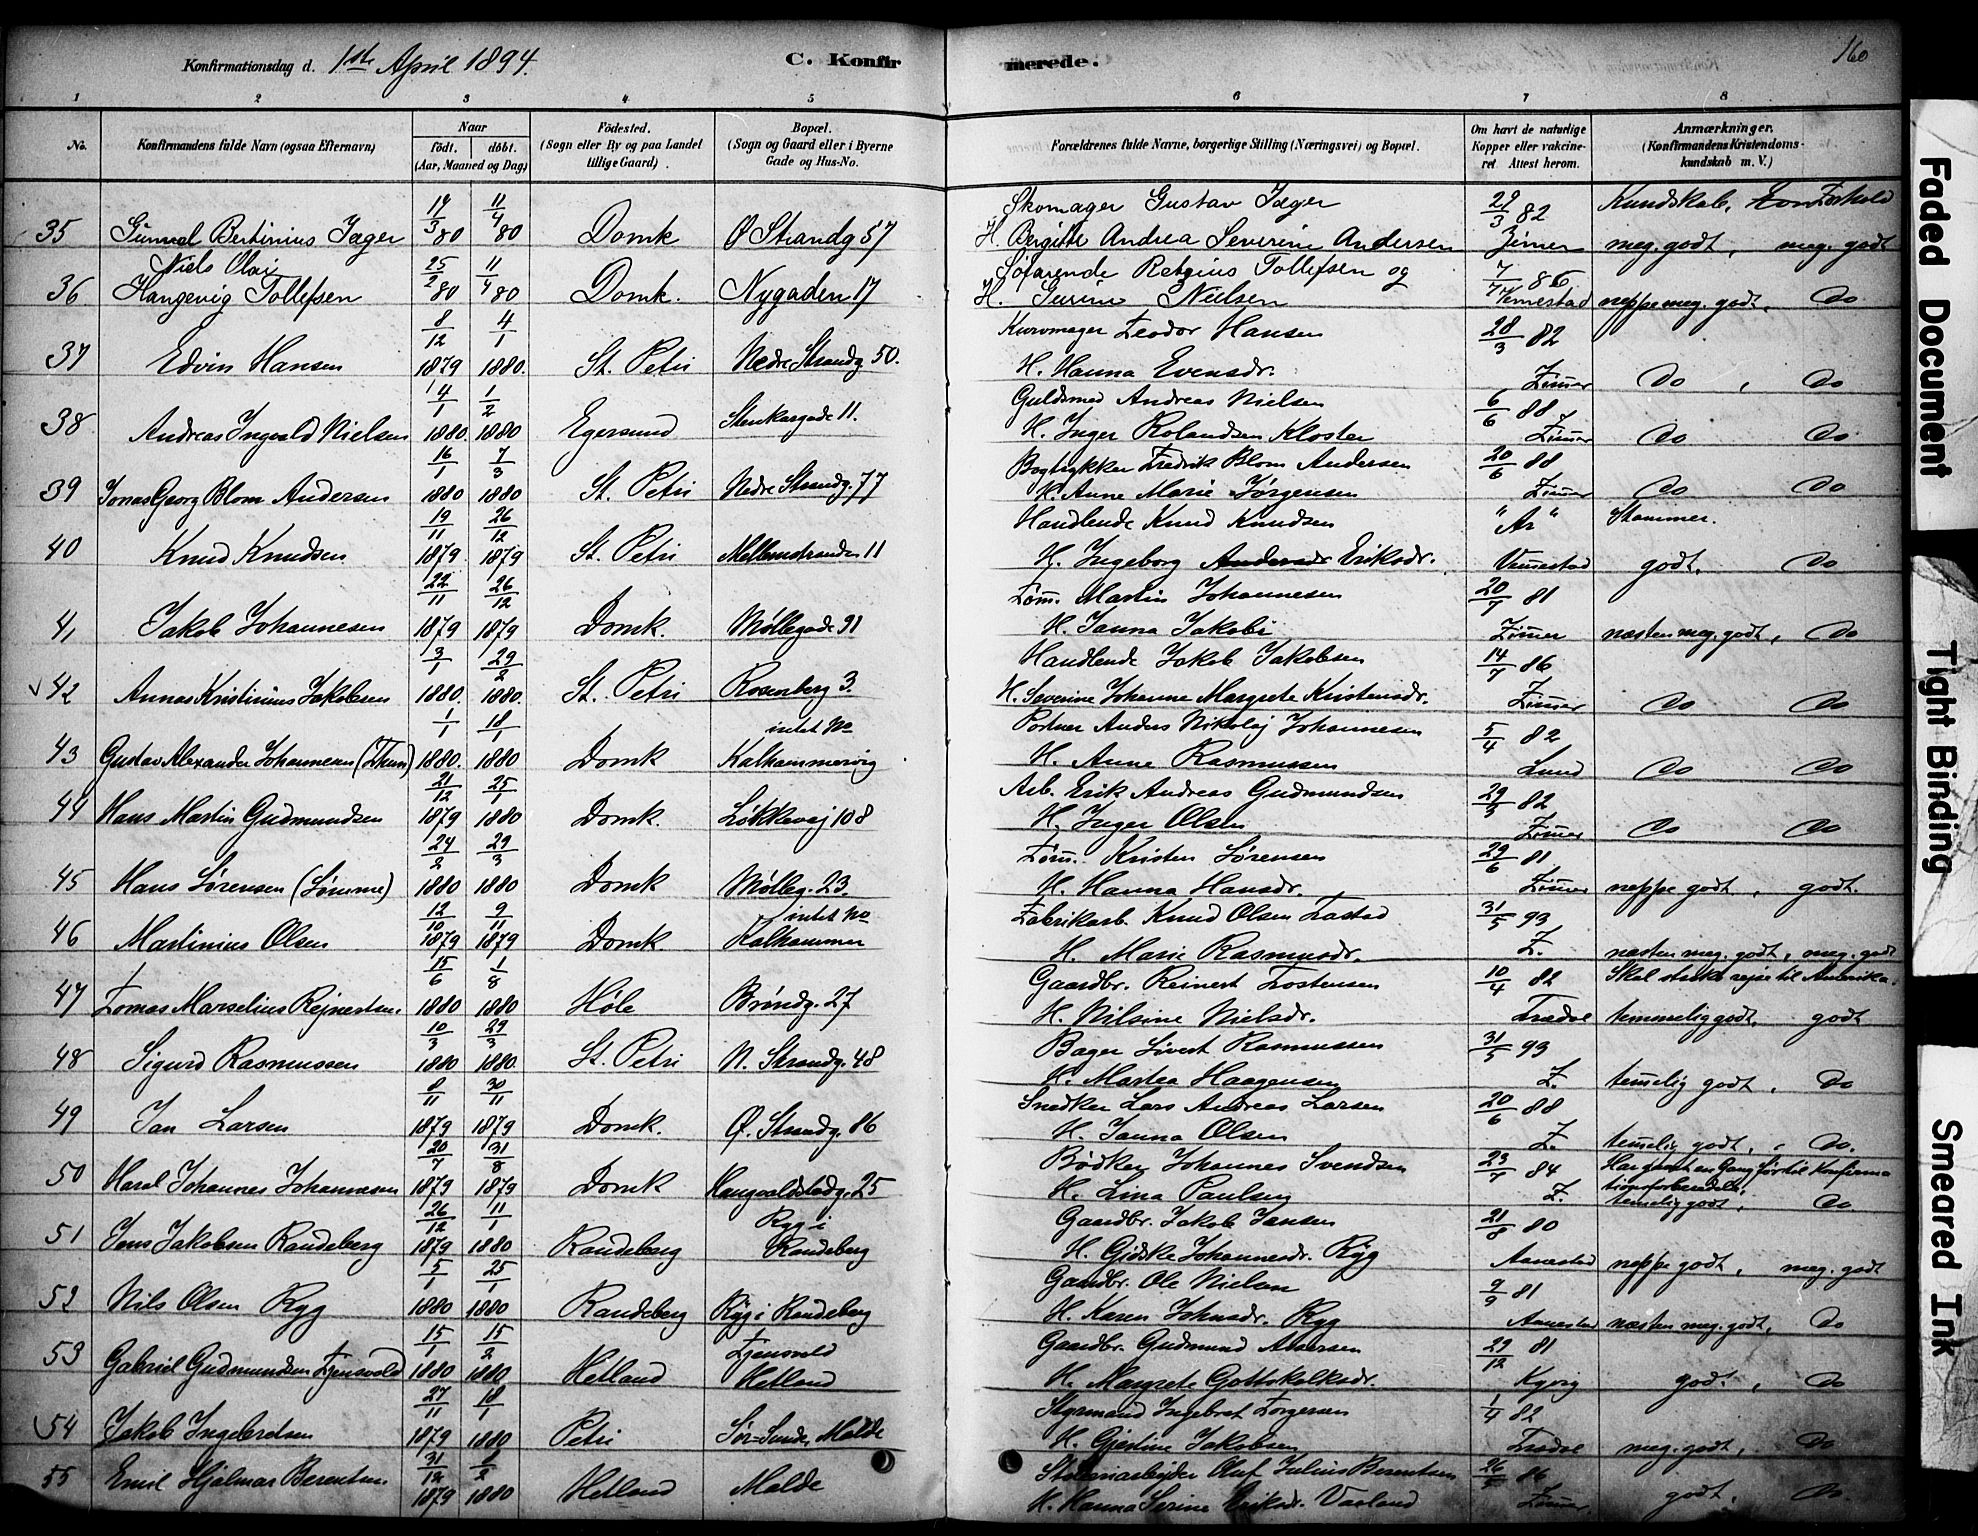 Konfirmationsdag d. 1ste April 1894.
C. Konfirmerede.
160
1 2 3 4 5 6 7 8
No.
Konfirmandens fulde Navn (ogsaa Efternavn)
Naar
født. døbt.
(Aar, Maaned og Dag)
Fødested.
(Sogn eller By og paa Landet
tillige Gaard).
Bopæl.
(Sogn og Gaard eller i Byerne
Gade og Hus-No.
Forældrenes fulde Navne, borgerlige Stilling (Næringsvei) og Bopæl.
Om havt de naturlige
Kopper eller vakcine-
ret Attest herom.
Anmærkninger.
(Konfirmandens Kristendoms-
kundskab m. V.)
19/3 11/4 Skomager Gustav Jæger 29/3 82 Kundskab, Forhold
35 Gunval Bertinius Jæger 80 80 Domk Ø Strandg 57 H. Birgitte Andrea Severine Andersen Zimer meg. godt, meg. godt
Niels Olai 25/2 11/4 Søfarende Retzius Tollefsen og 7/7 86
36 Hangevig Tollefsen 80 80 Domk. Nygaden 17 H. Serine Nielsen Vemestad neppe meg. godt, Do
8/12 4/1 Kurvmager Teodor Hansen 28/3 82
37 Edvin Hansen 1879 1880. St. Petri Nedre Strandg 50. H. Hanna Evensdr. Zimer Do, Do
4/1 1/2 Guldsmed Andreas Nielsen 6/6 88
38 Andreas Ingvald Nielsen 1880. 1880 Egersund Stenkargade 11. H. Inger Rolandsen Kloster Zimer Do Do
16/1 7/3 Bogtrykker Fredrik Blom Andersen 20/6 88
39 Jonas Georg Blom Andersen 1880 1880 St. Petri Nedre Strandg. 77 H. Anne Marie Jørgensen Zimer Do Do
19/11 26/12 Handlende Knud Knudsen " Ar " Stammer.
40 Knud Knudsen 1879. 1879 St. Petri Mellemstranden 11 H. Ingeborg Eriksdr. Vemestad godt. Do
22/11 26/12 Tøm. Martin Johannesen 20/7 81
41 Jakob Johannesen 1879 1879 Domk. Møllegade 91 H. Janna Jakobi Zimer næsten meg. godt, Do
3/1 29/2 Handlende Jakob Jakobsen 14/7 86
√ 42 Annas Kristinius Jakobsen 1880. 1880. St. Petri Rosenberg 3. H. Severine Johanne Margrete Kristensdr. Zimer Do Do
1/1 18/1 intet No Portner Anders Nikolaj Johannesen 5/4 82
43 Gustav Alexander Johannesen (Thun) 1880. 1880 Domk Kalhammervig H. Anne Rasmussen Lund Do Do
21/12 25/1 Arb. Erik Andreas Gudmundsen 29/3 82
44 Hans Martin Gudmundsen 1879 1880 Domk. Løkkevej 108 H. Inger Olsen Zimer Do Do
24/2 29/3 Tøm. Kristen Sørensen 29/6 81
45 Hans Sørensen (Sømme) 1880 1880 Domk Mølleg. 23. H. Hanna Hansdr. Zimer neppe godt, godt.
12/10 9/11 intet No Fabrikarb. Knud Olsen Tastad 31/5 93
46 Martinius Olsen 1879 1879 Domk Kalhammer H. Marie Rasmusdr. Z. næsten meg. godt, meg. godt
15/6 1/8 Gaardbr. Reinert Tostensen 10/4 82 Skal straks rejse til Amerika.
47 Tomas Marselius Rejnertsen. 1880 1880 Høle Brøndg. 27 H. Nilsine Nielsdr. Tradse temmelig godt, godt
10/3 29/3 Bager Sivert Rasmussen 31/5 93
48 Sigurd Rasmussen 1880 1880. St. Petri N. Strandg. 48 H. Martea Haagensen Z. temelig godt, Do
8/11 30/11 Snedker Lars Andreas Larsen 20/6 88
49 Jan Larsen 1879 1879 Domk. Ø. Strandg. 86 H. Janna Olsen Z. temelig godt, Do.
20/7 31/8 Bødker Johannes Svendsen 23/7 84 Har gaaet en Gang før til Konfirma
50 Harel Johannes Johannesen 1879 1879 Domk Haugvaldstadg. 25 H. Lina Paulsen Z. tionsforberedelse, temelig godt, Do
26/12 11/1 Ryg i Gaardbr. Jakob Jansen 21/8 80
51 Jens Jakobsen Randeberg 1879 1880 Randeberg Randeberg H. Gidske Johannesdr. Ryg Aanestad neppe godt, meg. godt
5/1 25/1 Gaardbr. Ole Nielsen 9/9 81
52 Nils Olsen Ryg 1880 1880 Randeberg Ryg i Randeberg H. Karen Johnsdr. Ryg Aanestad næsten meg. godt, Do
15/1 15/2 Tjensvold Gaardbr. Gudmund Assersen 29/12 81
53 Gabriel Gudmundsen Tjensvold 1880 1880. Hetland Hetland H. Margrete Gottskalksdr. godt, Do
27/11 18/1 Styrmand Ingebret Torgersen 1/4 82
√ 54 Jakob Ingebretsen 1879 1880 Petri Malde H. Gjertine Jakobsen Tradse meg. godt, Do
31/12 8/2 Oluf Julius Berentsen 26/5 86
55 Emil Hjalmar Berentsen. 1879 1880 Hetland Malde H. Hanna Serine Eriksdr. Varland Zimer. godt, Do.
Faded Document
Tight Binding
Smeared Ink